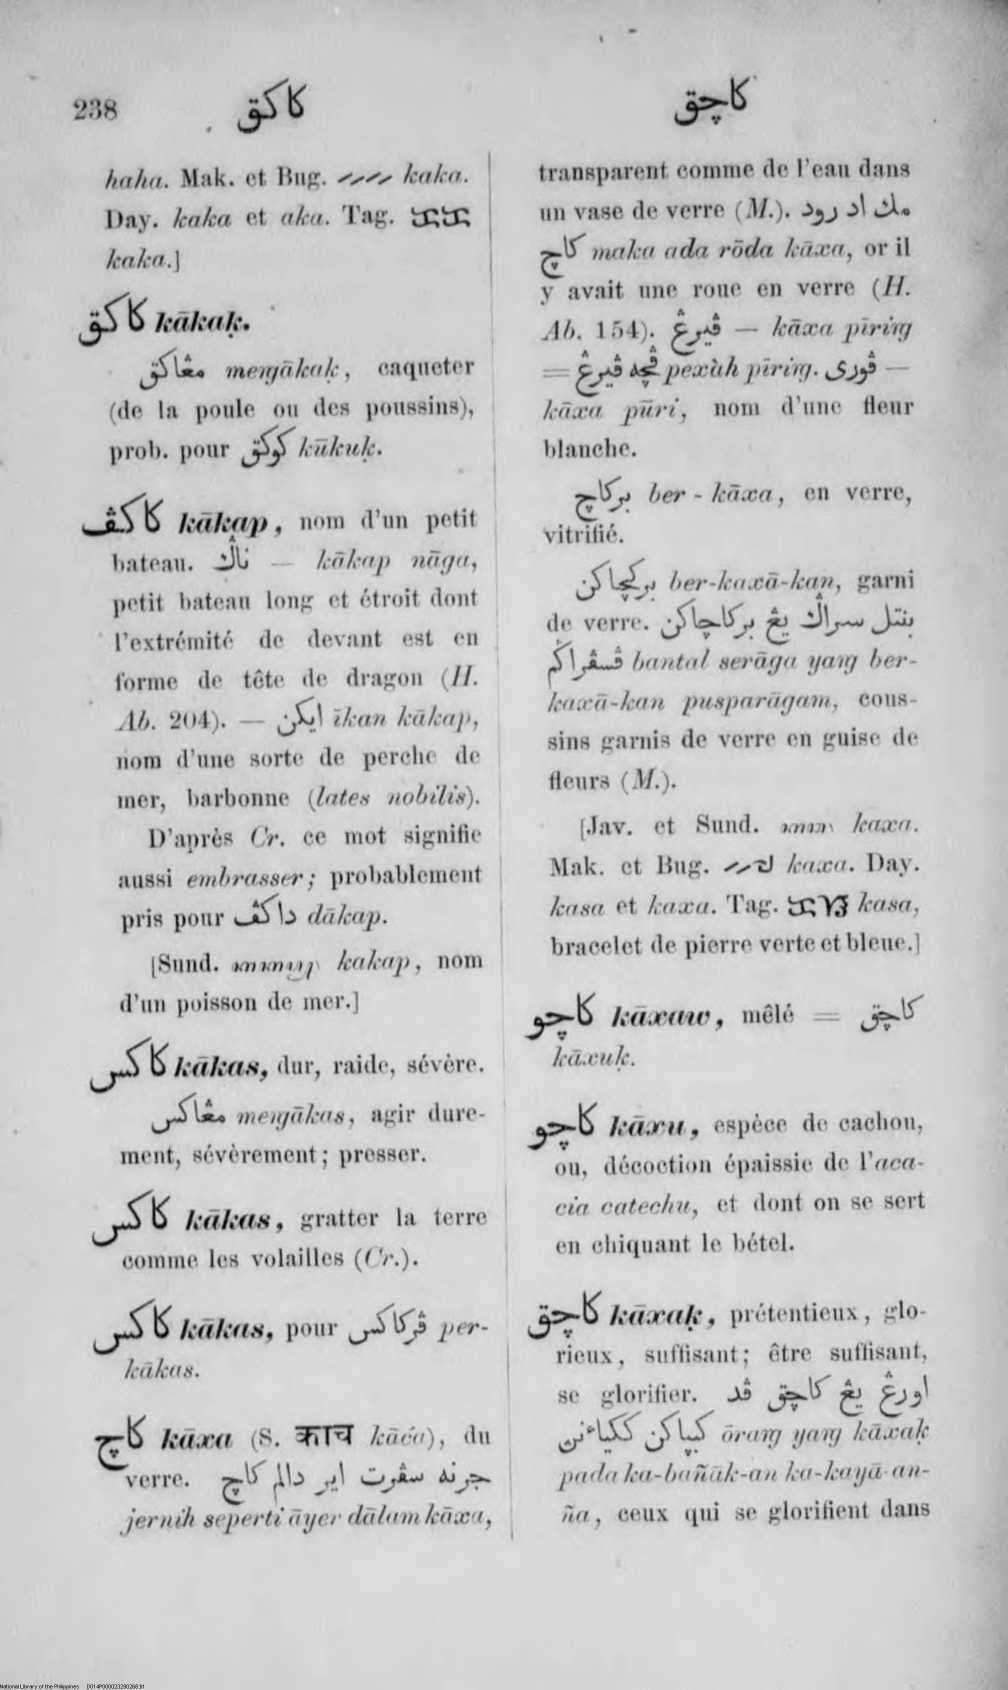 238
كاكق
كاچق
haha. Mak. et Bug. kaka.
Day. kaka et aka. Tag. ᜃᜃ
kaka.]
كاكق kākaḳ.
مڠاكق meṅgākaḳ, caqueter
(de la poule ou des poussins),
prob. pour كوكق kūkuḳ.
كاكڤ kākap, nom d'un petit
bateau. ناݢ — kākap nāga,
petit bateau long et étroit dont
l'extrémité de devant est en
forme de tête de dragon (H.
Ab. 204). — ايكن īkan kākap,
nom d'une sorte de perche de
mer, barbonne (lates nobilis).
D'après Cr. ce mot signifie
aussi embrasser; probablement
pris pour داكڤ dākap.
[Sund. kakap, nom
d'un poisson de mer.]
كاكس kākas, dur, raide, sévère.
مڠاكس meṅgākas, agir dure-
ment, sévèrement; presser.
كاكس kākas, gratter la terre
comme les volailles (Cr.).
كاكس kākas, pour ڤركاكس per-
kākas.
كاچ kāxa (S. काच kāća), du
verre. جرنه سڤرت اير دالم كاچ
jernih seperti āyer dālam kāxa,
transparent comme de l'eau dans
un vase de verre (M.). مك اد رود
كاچ maka ada rōda kāxa, or il
y avait une roue en verre (H.
Ab. 154). ڤيرڠ — kāxa pīriṅg
= ڤچه ڤيرڠ pexàh pīriṅg. ڤورى —
kāxa pūri, nom d'une fleur
blanche.
بركاچ ber-kāxa, en verre,
vitrifié.
بركچاكن ber-kaxā-kan, garni
de verre. بنتل سراݢ يڠ بركاچاكن
ڤسڤراݢم bantal serāga yaṅg ber-
kaxā-kan pusparāgam, cous-
sins garnis de verre en guise de
fleurs (M.).
[Jav. et Sund. kaxa.
Mak. et Bug. kaxa. Day.
kasa et kaxa. Tag. ᜃᜐ kasa,
bracelet de pierre verte et bleue.]
كاچو kāxaw, mêlé = كاچق
kāxuḳ.
كاچو kāxu, espèce de cachou,
ou, décoction épaissie de l'aca-
cia catechu, et dont on se sert
en chiquant le bétel.
كاچق kāxaḳ, prétentieux, glo-
rieux, suffisant; être suffisant,
se glorifier. اورڠ يڠ كاچق ڤد
ōraṅg yaṅg kāxaḳ
pada ka-bañāk-an ka-kayā-an-
ña, ceux qui se glorifient dans
National Library of the Philippines